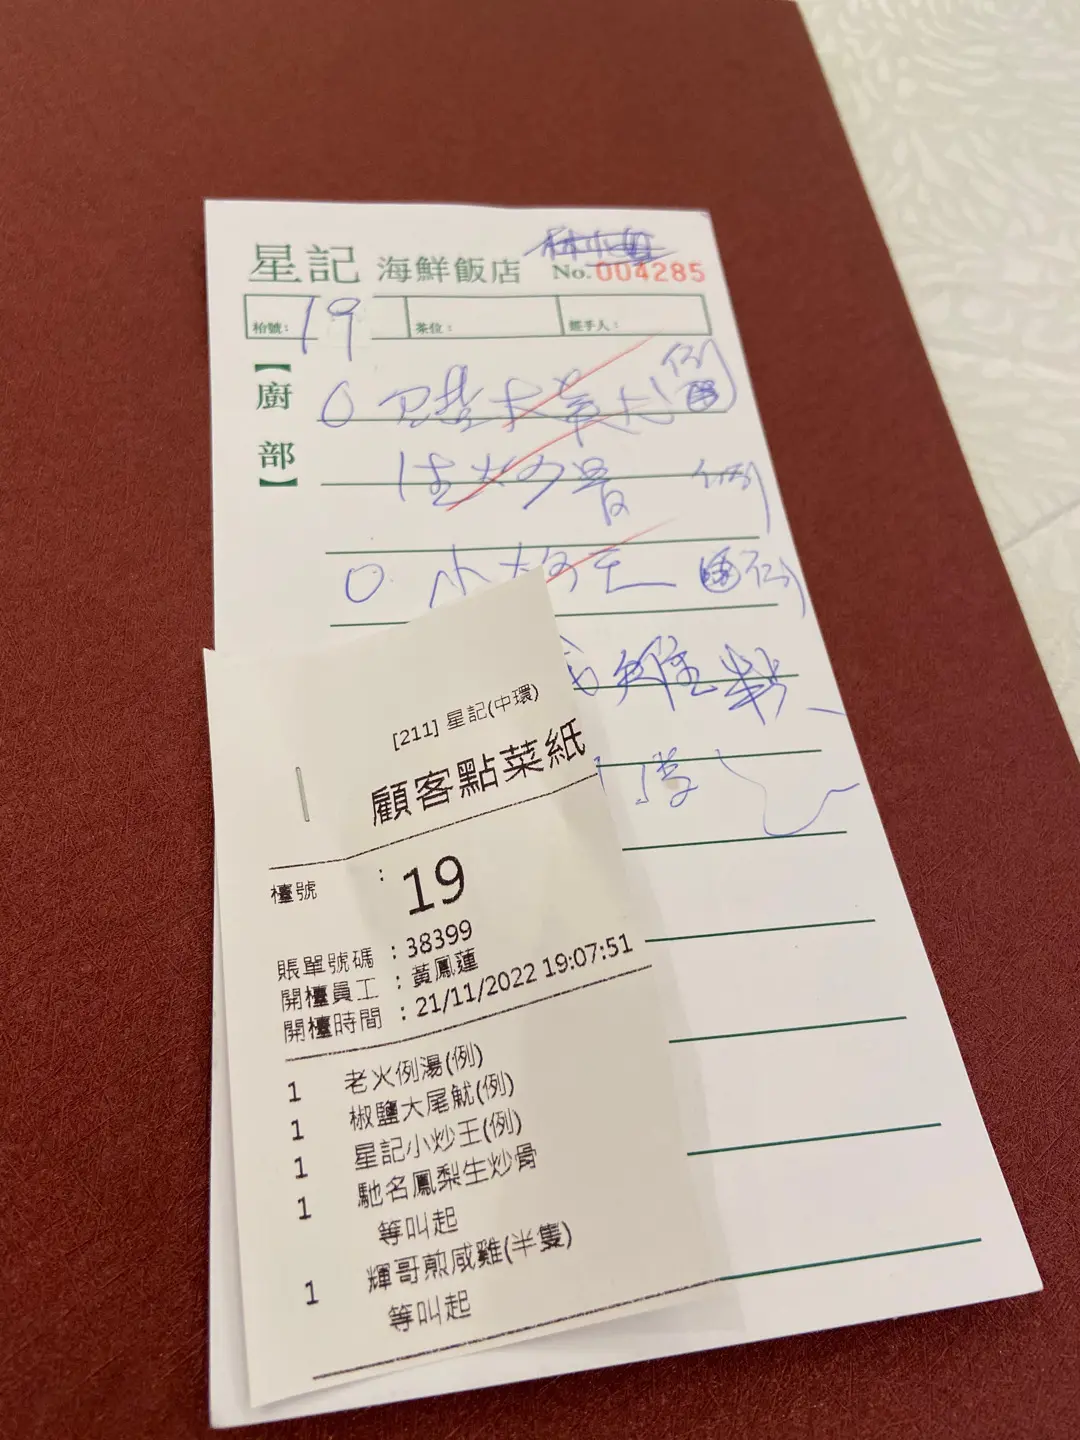 星記 海鮮飯店
No. 004285
枱號: 19 茶位: 經手人:
【廚部】
例
生炒骨 例
小炒王 例
[211] 星記(中環)
顧客點菜紙
檯號 : 19
賬單號碼 : 38399
開檯員工 : 黃鳳蓮
開檯時間 : 21/11/2022 19:07:51
1 老火例湯(例)
1 椒鹽大尾魷(例)
1 星記小炒王(例)
1 馳名鳳梨生炒骨
等叫起
1 輝哥煎咸雞(半隻)
等叫起